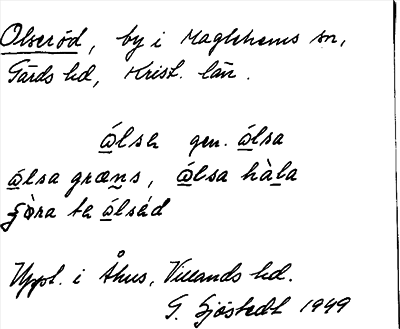 Olseröd, by i Maglehems sn,
Gärds hd, Krist. län.
ålsə gen. ålsa
ålsa græns, ålsa hàla
ta ålsəd
Uppt. i Åhus, Villands hd.
G. Sjöstedt 1949